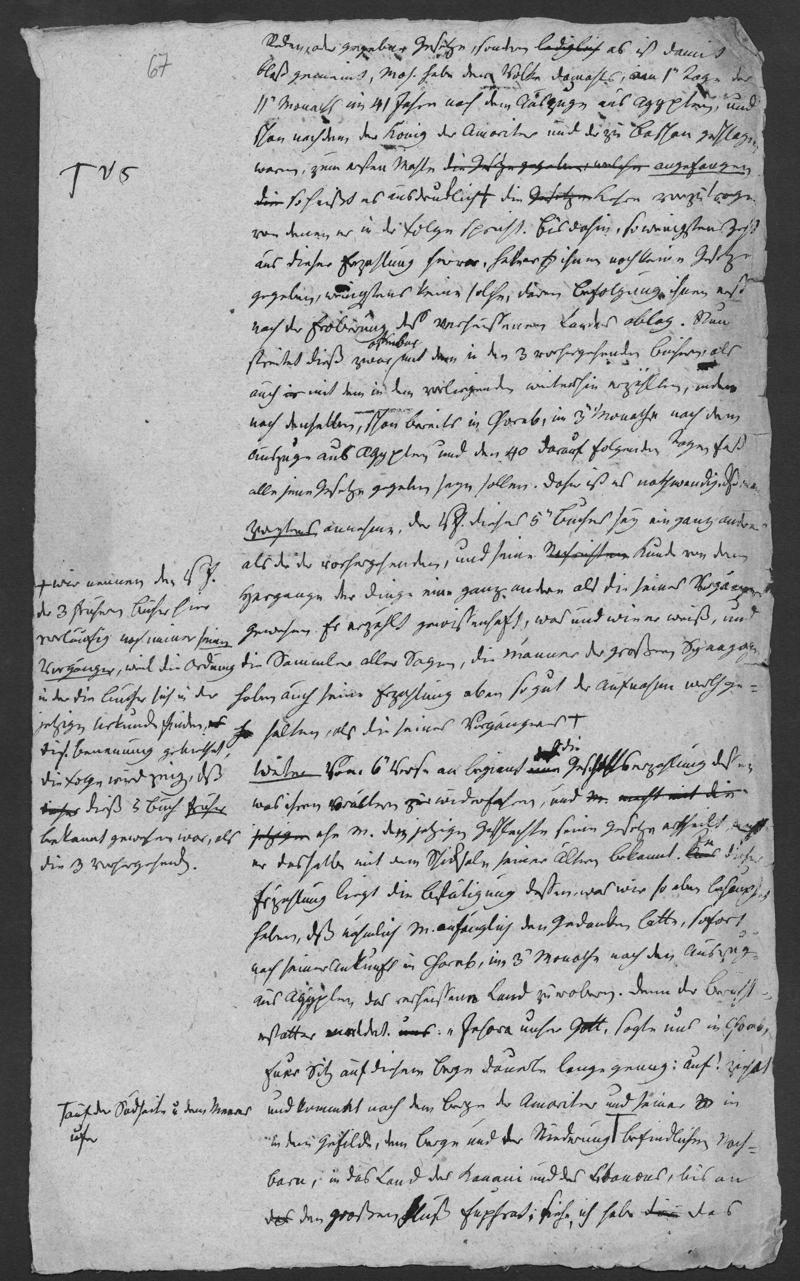 67
Reden, oder gegebene Gesetze, sondern lediglich es ist damit
bloß gemeint, Mos. habe dem Volke damahls, am 1n Tage des
11n Monaths im 41 Jahre nach dem Auszuge aus Agypten, und
schon nachdem der König der Amoriter und der zu Basan geschlagen
waren, zum ersten Mahle die Gesetze gegeben, welche angefangen
die so heißt es ausdrucklich die Gesetze vorzutragen
von denen er in der Folge spricht. Bis dahin, so wenigstens geht
aus dieser Erzahlung hervor, hatte er ihnen noch keine Gesetze
gegeben, wenigstens keine solche, deren Befolgung ihnen erst
nach der Eroberung des verheissenen Landes oblag. Nun
streitet dieß zwar offenbar mit dem in den 3 vorhergehenden Büchern, als
auch mit dem in dem vorliegenden weiterhin erzählten, indem
nach denselben, schon bereits in Choreb, im 3n Monathe nach dem
Auszuge aus Agypten und den 40 darauf folgenden Tagen fast
alle jene Gesetze gegeben seyn sollen. Daher ist es nothwendig, daß man
annehme, der Vf. dieses 5n Buches sey ein ganz anderer
als der der vorhergehenden, und seine Kunde von dem
Hergange der Dinge eine ganz andere als die seines Vorgängers
gewesen. Er erzählt gewissenhaft, was und wie er weiß, und
die Sammler aller Sagen, die Männer der großen Synagoge,
haben auch seine Erzahlung eben so gut der Aufnahme werth ge=
halten, als die seines Vorgängers +
+ wir nennen den Vf.
der 3 frühern Bücher hier
vorläufig noch immer seinen
Vorgänger, weil die Ordnung
in der die Bücher sich in der
jetzigen Urkunde finden, es
diese Benennung gebiethet,
die Folge wird zeigen, daß
dieß 5 Buch früher
bekannt gewesen war, als
die 3 vorhergehenden.
Weiter Vom 6n Verse an beginnt die Geschichtserzahlung dessen
was ihren Vorältern zu widerfahren, und M. macht mit den
jetzigen ehe M. dem jetzigen Geschlechte seine Gesetze ertheilt, macht
er dasselbe mit dem Schicksale seiner Ältern bekannt. In dieser
Erzahlung liegt die Bestätigung dessen, was wir so eben behauptet
haben, daß nähmlich M. anfänglich den Gedanken hatte, sofort
nach seiner Ankunft in Choreb, im 3n Monathe nach dem Auszug
aus Agypten das verheissene Land zu erobern. Denn der Bericht=
erstatter meldet uns: „Jehova unser Gott, sagte uns in Choreb,
Euer Sitz auf diesem Berge dauerte lange genug: Auf! ziehet
und kommt nach dem Berge der Amoriter und seiner in
in dem Gefilde, dem Berge und der Niederung befindlichen Nach=
barn, in das Land des Kanani und des Libanons, bis an
auf der Südseite u dem Meeres
ufer
das den großen Fluß Euphrat; siehe, ich habe das